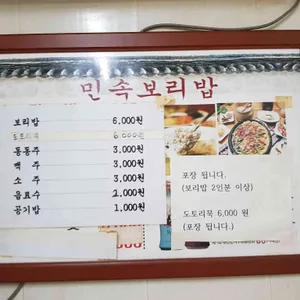 민속보리밥
보리밥 6,000원
도토리묵 6,000원
동동주 3,000원
맥 주 3,000원
소 주 3,000원
음료수 2,000원
공기밥 1,000원
포장 됩니다.
(보리밥 2인분 이상)
도토리묵 6,000 원
(포장 됩니다.)